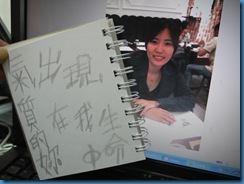 氣質的妳
出現
在我生
命中